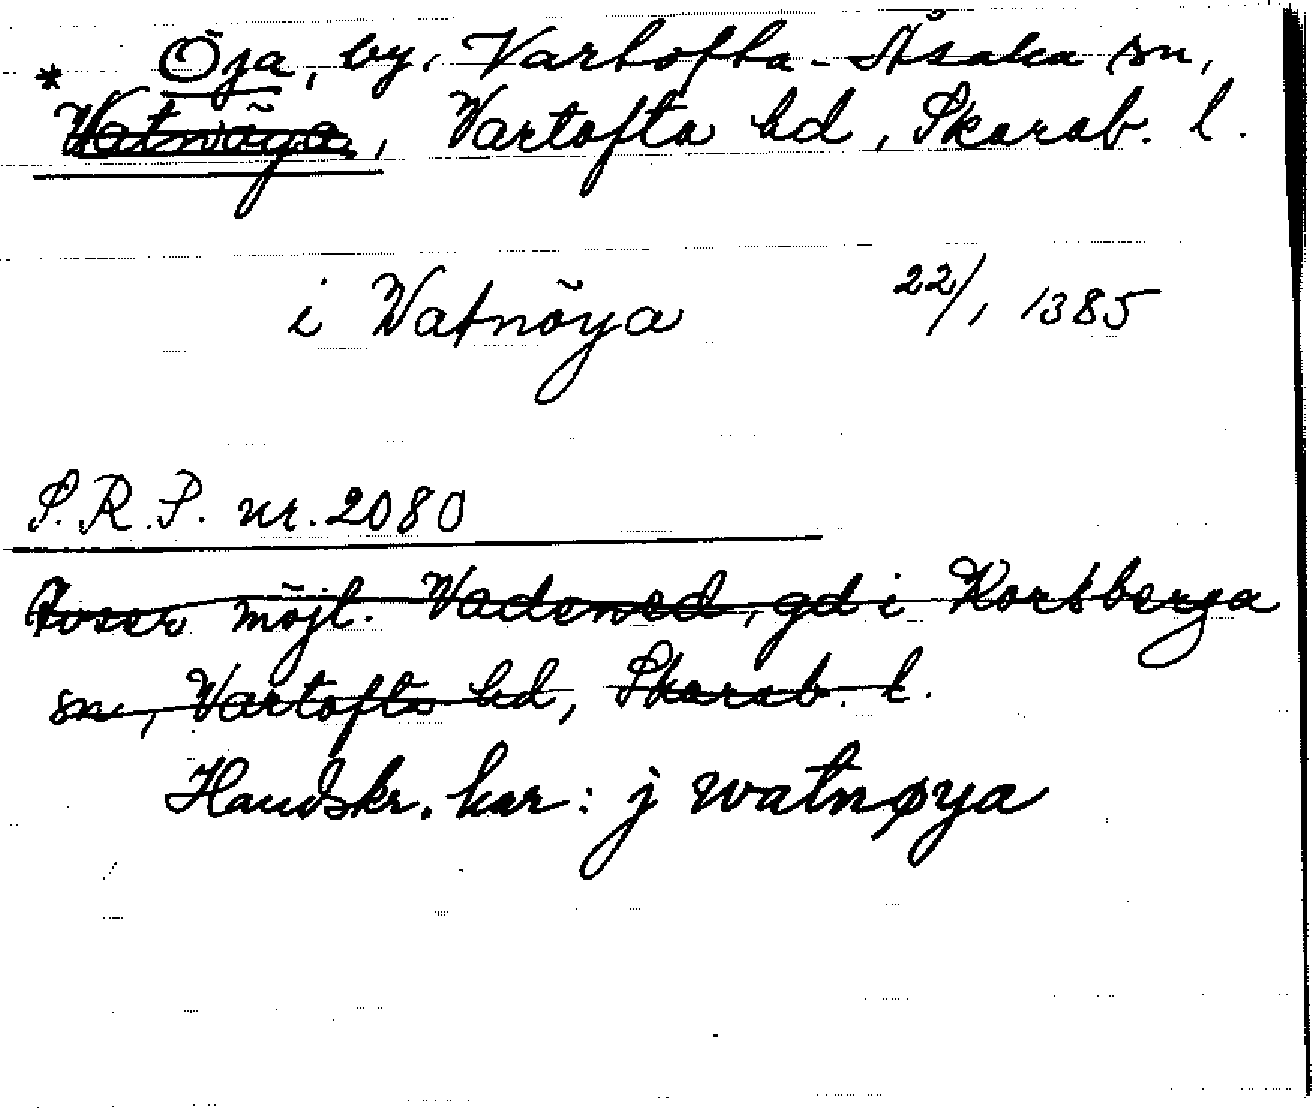 * Öja, by, Vartofta-Åsaka sn,
Watnöya, Vartofta hd, Skarab. l.
i Watnöya 22/1 1385
S.R.P. nr. 2080
Avser möjl. Vadened, gd i Korsberga
sn, Vartofta hd, Skarab. l.
Handskr. har: j watnøya